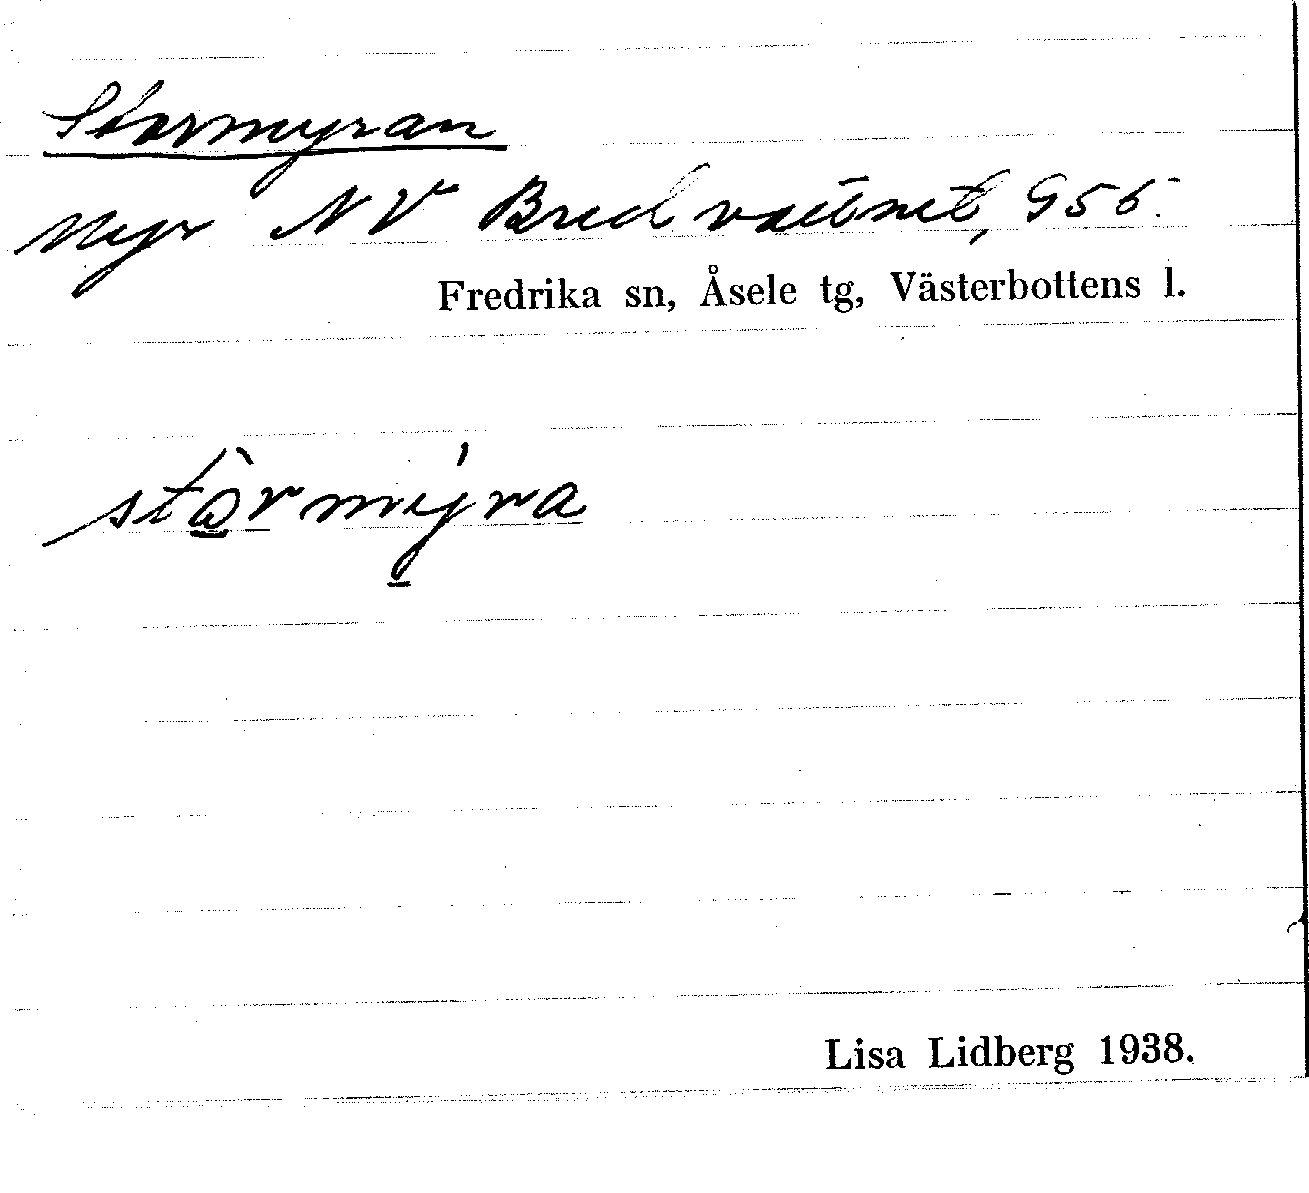 Stormyran
Myr NV Bredvattnet, G56.
Fredrika sn, Åsele tg, Västerbottens l.
stò̱rmý̱ra
Lisa Lidberg 1938.